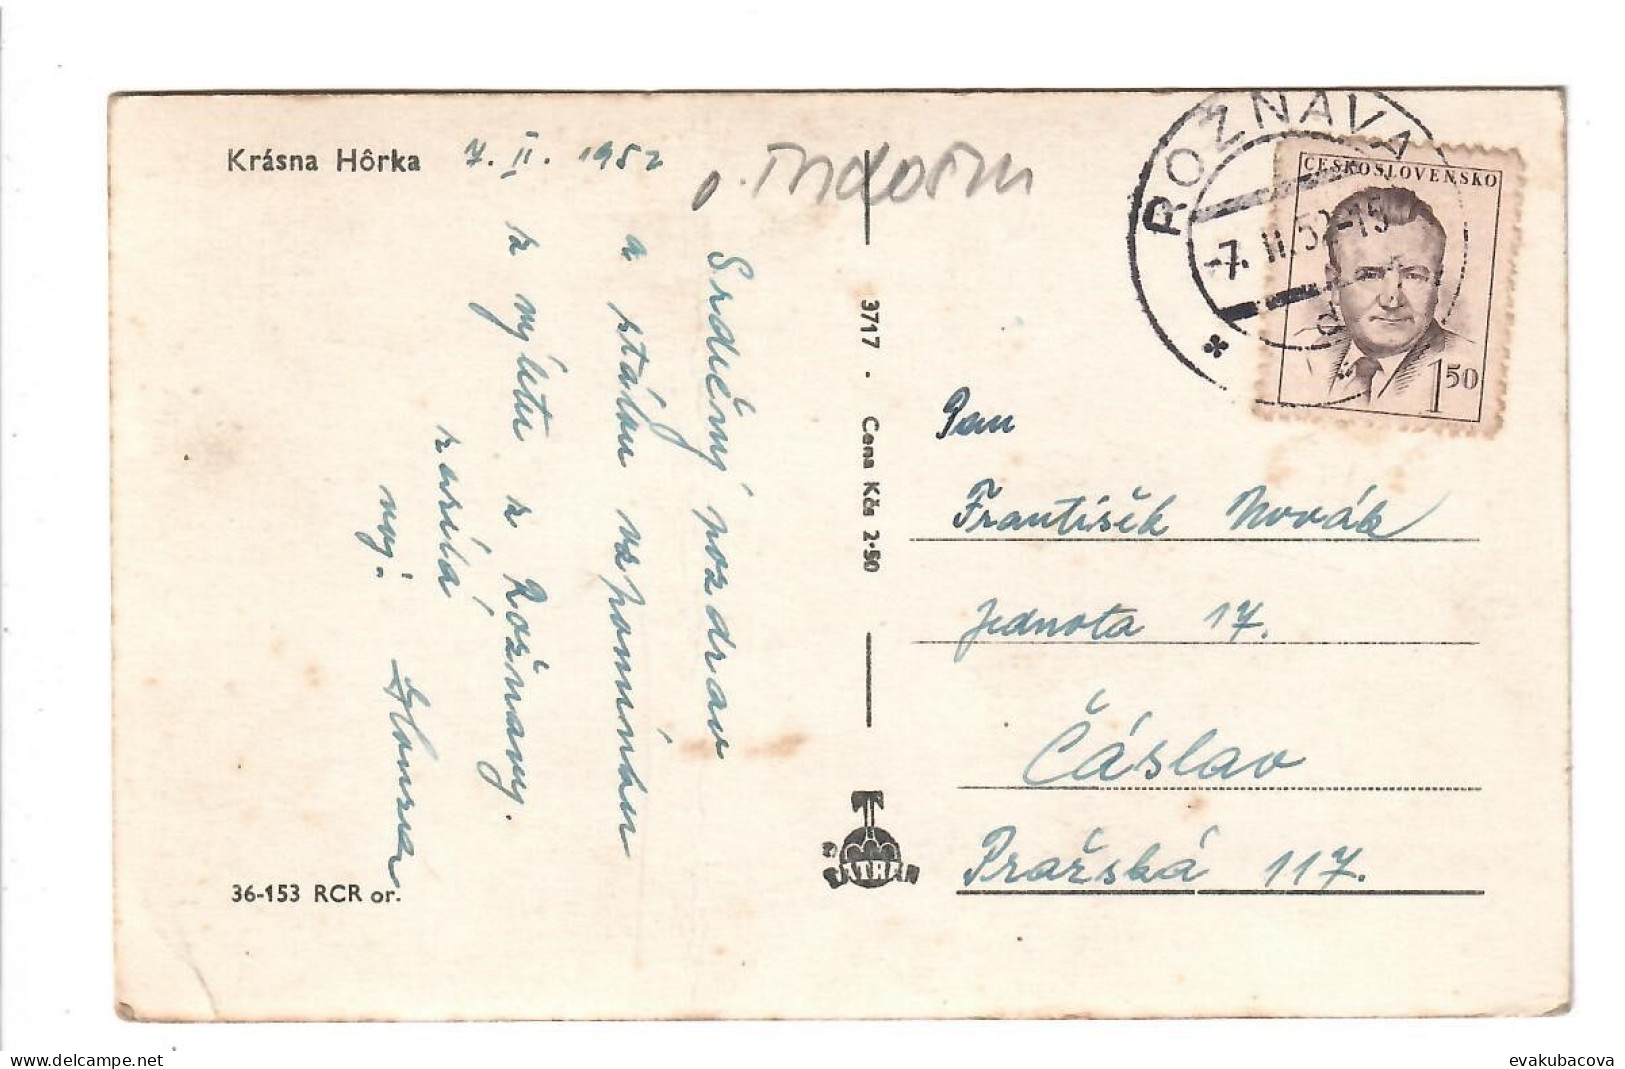 Krásna Hôrka
7. II. 1952
Srdečný pozdrav
a stálou vzpomínku
z výletu z Rožnavy.
zasílá
Vaj.
ROŽNAVA
-7. II. 52-15
ČESKOSLOVENSKO
1 50
3717 . Cena Kčs 2·50
TATRAN
Pan
František Novák
Jednota 17.
Čáslav
Pražská 117.
36-153 RCR or.
www.delcampe.net
evakubacova